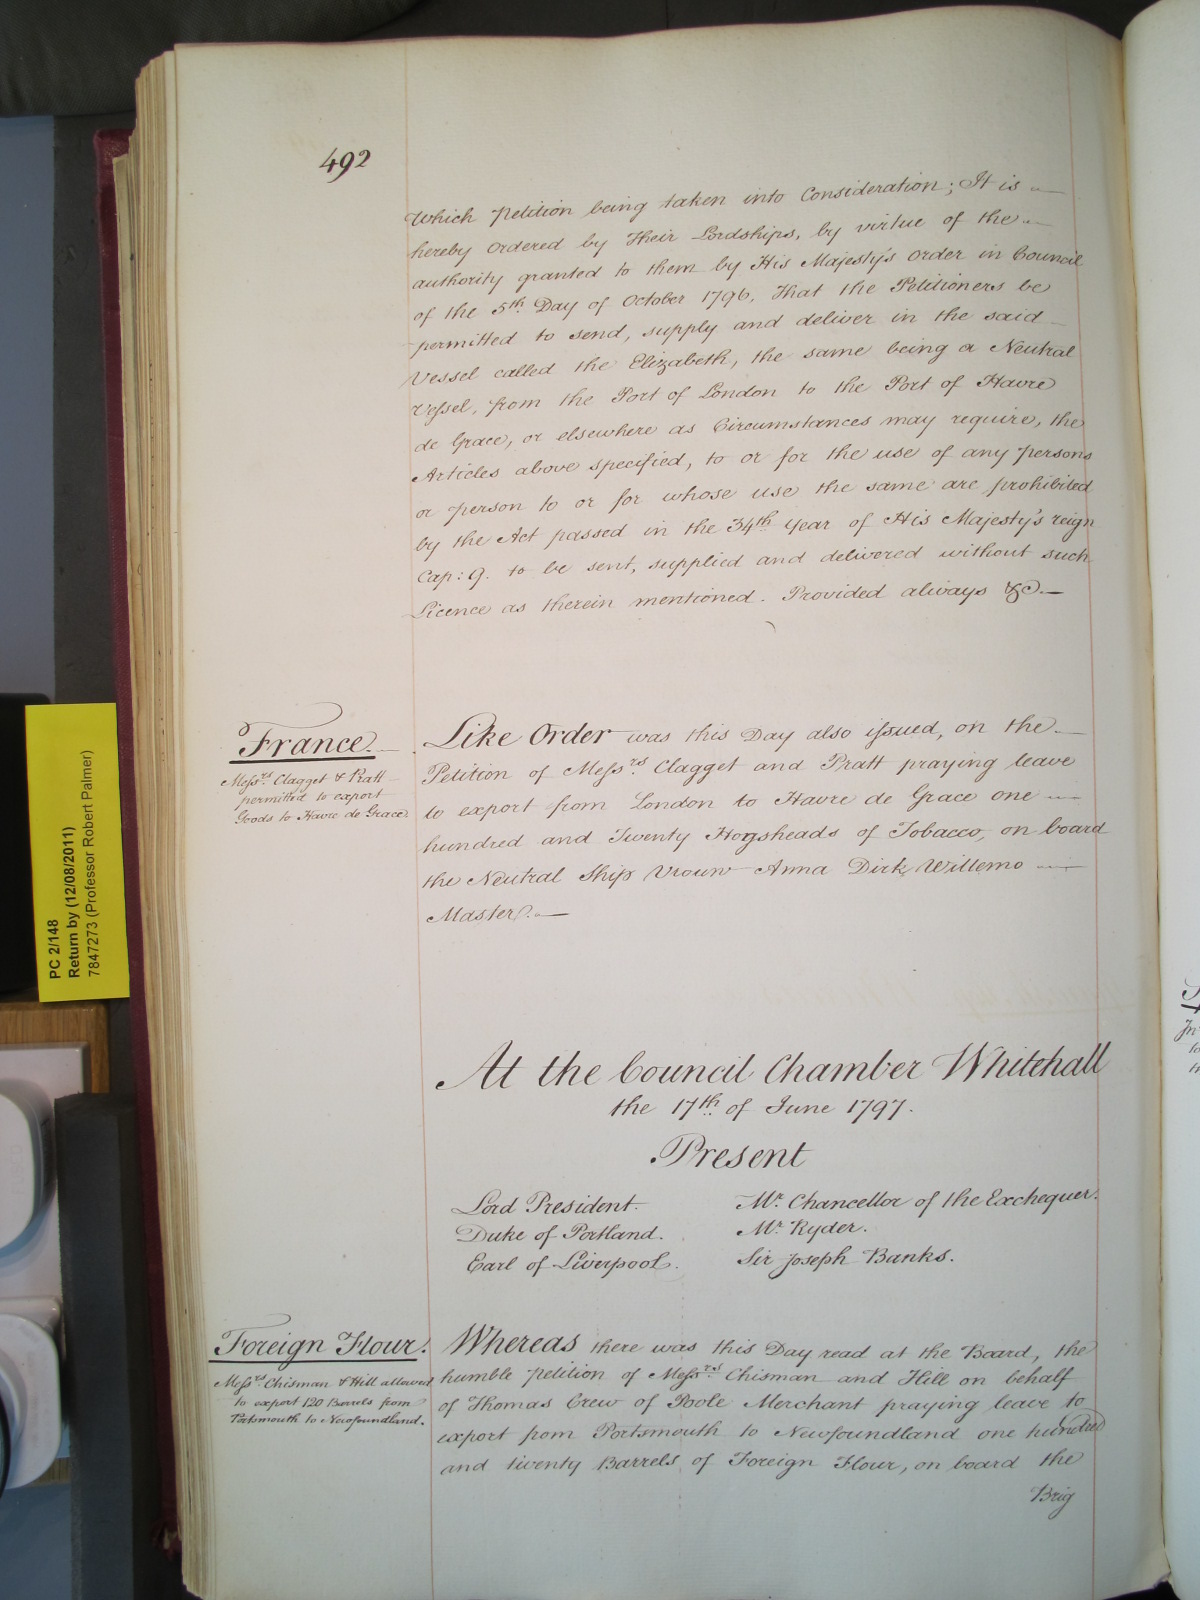 492
Which Petition being taken into Consideration; It is
hereby Ordered by Their Lordships, by virtue of the
authority granted to them by His Majesty's Order in Council
of the 5th Day of October 1796, That the Petitioners be
permitted to send, supply and deliver in the said
Vessel called the Elizabeth, the same being a Neutral
Vessel, from the Port of London to the Port of Havre
de Grace, or elsewhere as Circumstances may require, the
Articles above specified, to or for the use of any persons
or person to or for whose use the same are prohibited
by the Act passed in the 34th Year of His Majesty's reign
Cap: 9. to be sent, supplied and delivered without such
Licence as therein mentioned. Provided always &c.
France.
Messrs. Clagget & Pratt
permitted to export
Goods to Havre de Grace.
Like Order was this Day also issued, on the
Petition of Messrs. Clagget and Pratt praying leave
to export from London to Havre de Grace one
hundred and Twenty Hogsheads of Tobacco, on board
the Neutral Ship Vrouw Anna Dirk Willemo
Master.
At the Council Chamber Whitehall
the 17th of June 1797.
Present
Lord President. Mr. Chancellor of the Exchequer.
Duke of Portland. Mr. Ryder.
Earl of Liverpool. Sir Joseph Banks.
Foreign Flour.
Messrs. Chisman & Hill allowed
to export 120 Barrels from
Portsmouth to Newfoundland.
Whereas there was this Day read at the Board, the
humble petition of Messrs. Chisman and Hill on behalf
of Thomas Crew of Poole Merchant praying leave to
export from Portsmouth to Newfoundland one hundred
and twenty Barrels of Foreign Flour, on board the
Brig
PC 2/148
Return by (12/08/2011)
7847273 (Professor Robert Palmer)